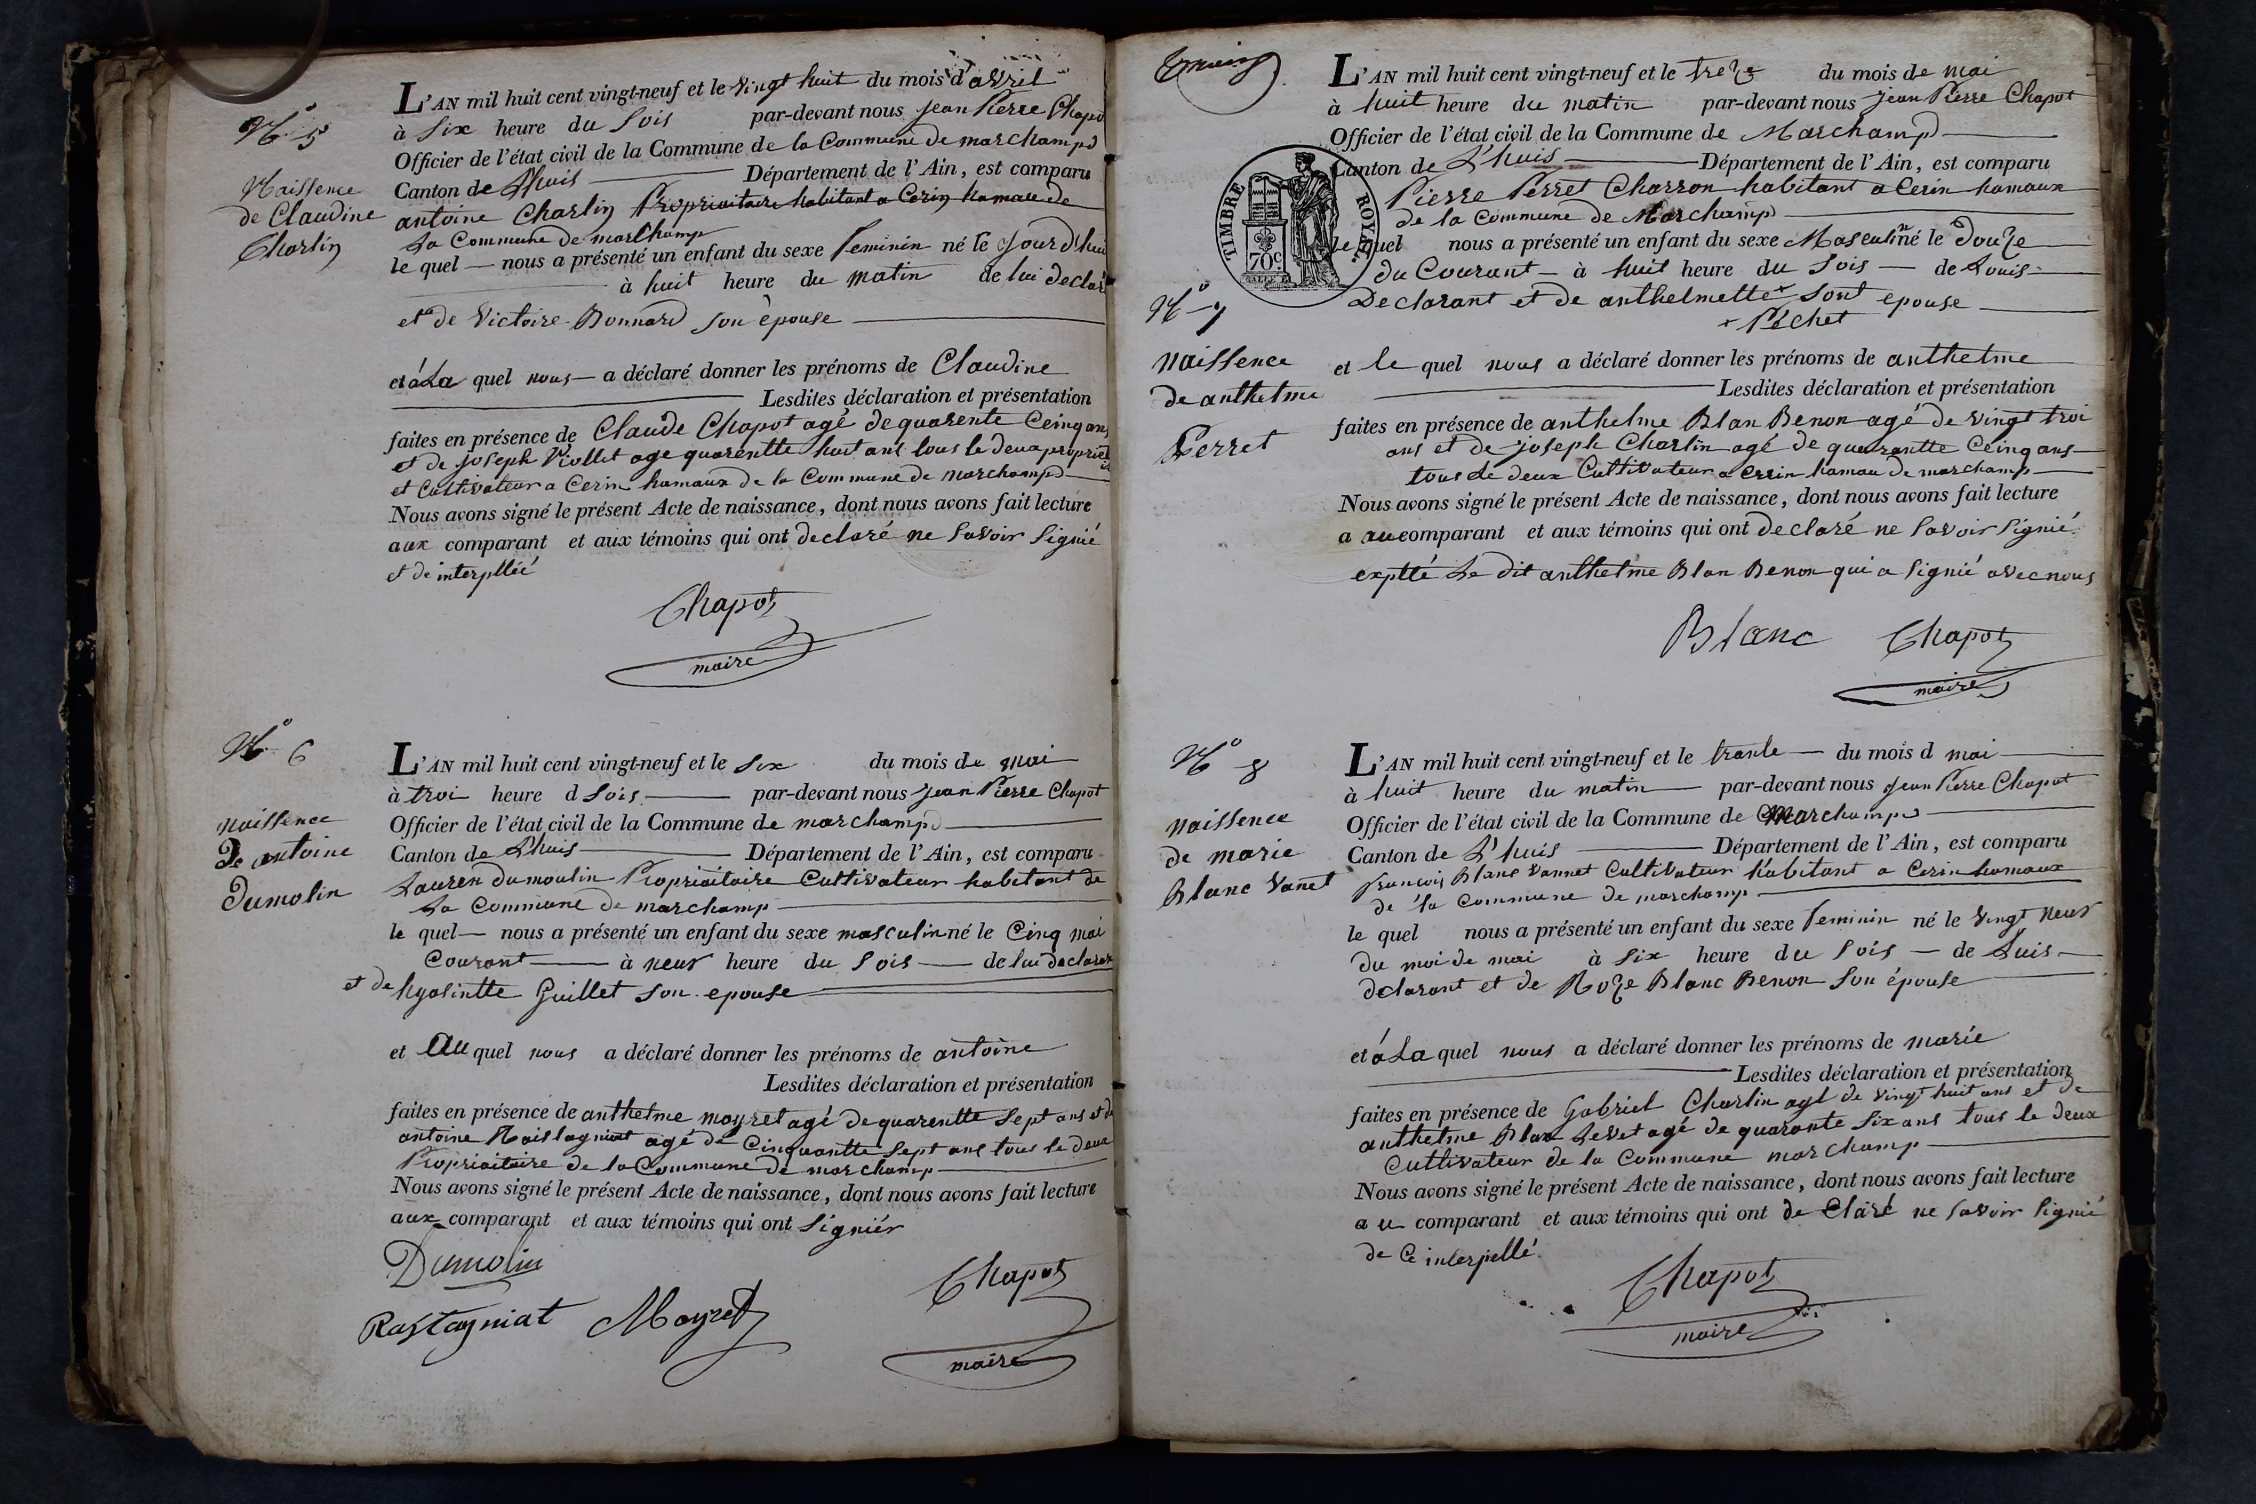 N° 5
Naissence
de Claudine
Charlin
L'AN mil huit cent vingt-neuf et le vingt huit du mois d'avril
à Six heure du Soir par-devant nous jean Pierre Chapot
Officier de l'état civil de la Commune de la Commune de marchamp
Canton de L'huis Département de l'Ain, est comparu
antoine Charlin Propriaitaire habitant a Cerin hamau de
La Commune de marchamp
le quel nous a présenté un enfant du sexe feminin né le Jour d'hui
à huit heure du matin de lui déclar
et de Victoire Bonnard son épouse
et à La quel nous a déclaré donner les prénoms de Claudine
Lesdites déclaration et présentation
faites en présence de Claude Chapot agé de quarente Ceinq ans
et de joseph Viollet age quarentte huit ans tous le deux propriet
et Cultivateur a Cerin hamaux de la Commune de marchamp
Nous avons signé le présent Acte de naissance, dont nous avons fait lecture
aux comparant et aux témoins qui ont declaré ne Savoir Signié
et de interpllié
Chapot
maire
N° 6
naissence
De antoine
Dumolin
L'AN mil huit cent vingt-neuf et le Six du mois de mai
à troi heure d Soir par-devant nous jean Pierre Chapot
Officier de l'état civil de la Commune de marchamp
Canton de L'huis Département de l'Ain, est comparu
Lauren dumoulin Propriaitaire Cultivateur habitant de
La Commune de marchamp
le quel nous a présenté un enfant du sexe masculin né le Cinq mai
Courant à neuf heure du Soir de lui declarer
et de hyasintte Guillet son epouse
et Au quel nous a déclaré donner les prénoms de antoine
Lesdites déclaration et présentation
faites en présence de anthelme moyret agé de quarentte Sept ans et de
antoine Raistagniat agé de Cinquantte Sept ans tous le deux
Propriaitaire de la Commune de marchamp
Nous avons signé le présent Acte de naissance, dont nous avons fait lecture
aux comparant et aux témoins qui ont Signiér
Dumolin
Chapot
Rastagniat Moyret
maire
TIMBRE ROYAL
70c
N° 7
naissence
de anthelme
Perret
L'AN mil huit cent vingt-neuf et le treze du mois de mai
à huit heure du matin par-devant nous jean Pierre Chapot
Officier de l'état civil de la Commune de Marchamp
Canton de L'huis Département de l'Ain, est comparu
Pierre Perret Charron habitant a Cerin hamaux
de la Commune de Marchamp
le quel nous a présenté un enfant du sexe Masculin né le douze
du Courant à huit heure du Soir de Louis
Declarant et de anthelmette + Sont epouse
+ Péchet
et le quel nous a déclaré donner les prénoms de anthelme
Lesdites déclaration et présentation
faites en présence de anthelme Blan Benon agé de vingt troi
ans et de joseph Charlin agé de quarantte Ceinq ans
tous le deux Cultivateur a Cerin hamau de marchamp
Nous avons signé le présent Acte de naissance, dont nous avons fait lecture
a au comparant et aux témoins qui ont declaré ne Savoir Signié
exptté Le dit anthelme Blan Benon qui a Signié avec nous
Blanc Chapot
maire
N° 8
naissence
de marie
Blanc Vanet
L'AN mil huit cent vingt-neuf et le trante du mois d mai
à huit heure du matin par-devant nous jean Pierre Chapot
Officier de l'état civil de la Commune de Marchamp
Canton de L'huis Département de l'Ain, est comparu
françois Blanc Vannet Cultivateur habitant a Cerin hamaux
de la Commune de marchamp
le quel nous a présenté un enfant du sexe feminin né le vingt neuf
du moi de mai à Six heure du Soir de Luis
declarant et de Roze Blanc Benon Son épouse
et à La quel nous a déclaré donner les prénoms de marie
Lesdites déclaration et présentation
faites en présence de Gabriel Charlin agé de vingt huit ans et de
anthelme Blan Levet agé de quarante Six ans tous le deux
Cultivateur de la Commune marchamp
Nous avons signé le présent Acte de naissance, dont nous avons fait lecture
au comparant et aux témoins qui ont de Claré ne Savoir Signié
de Ce interpellé
Chapot
maire